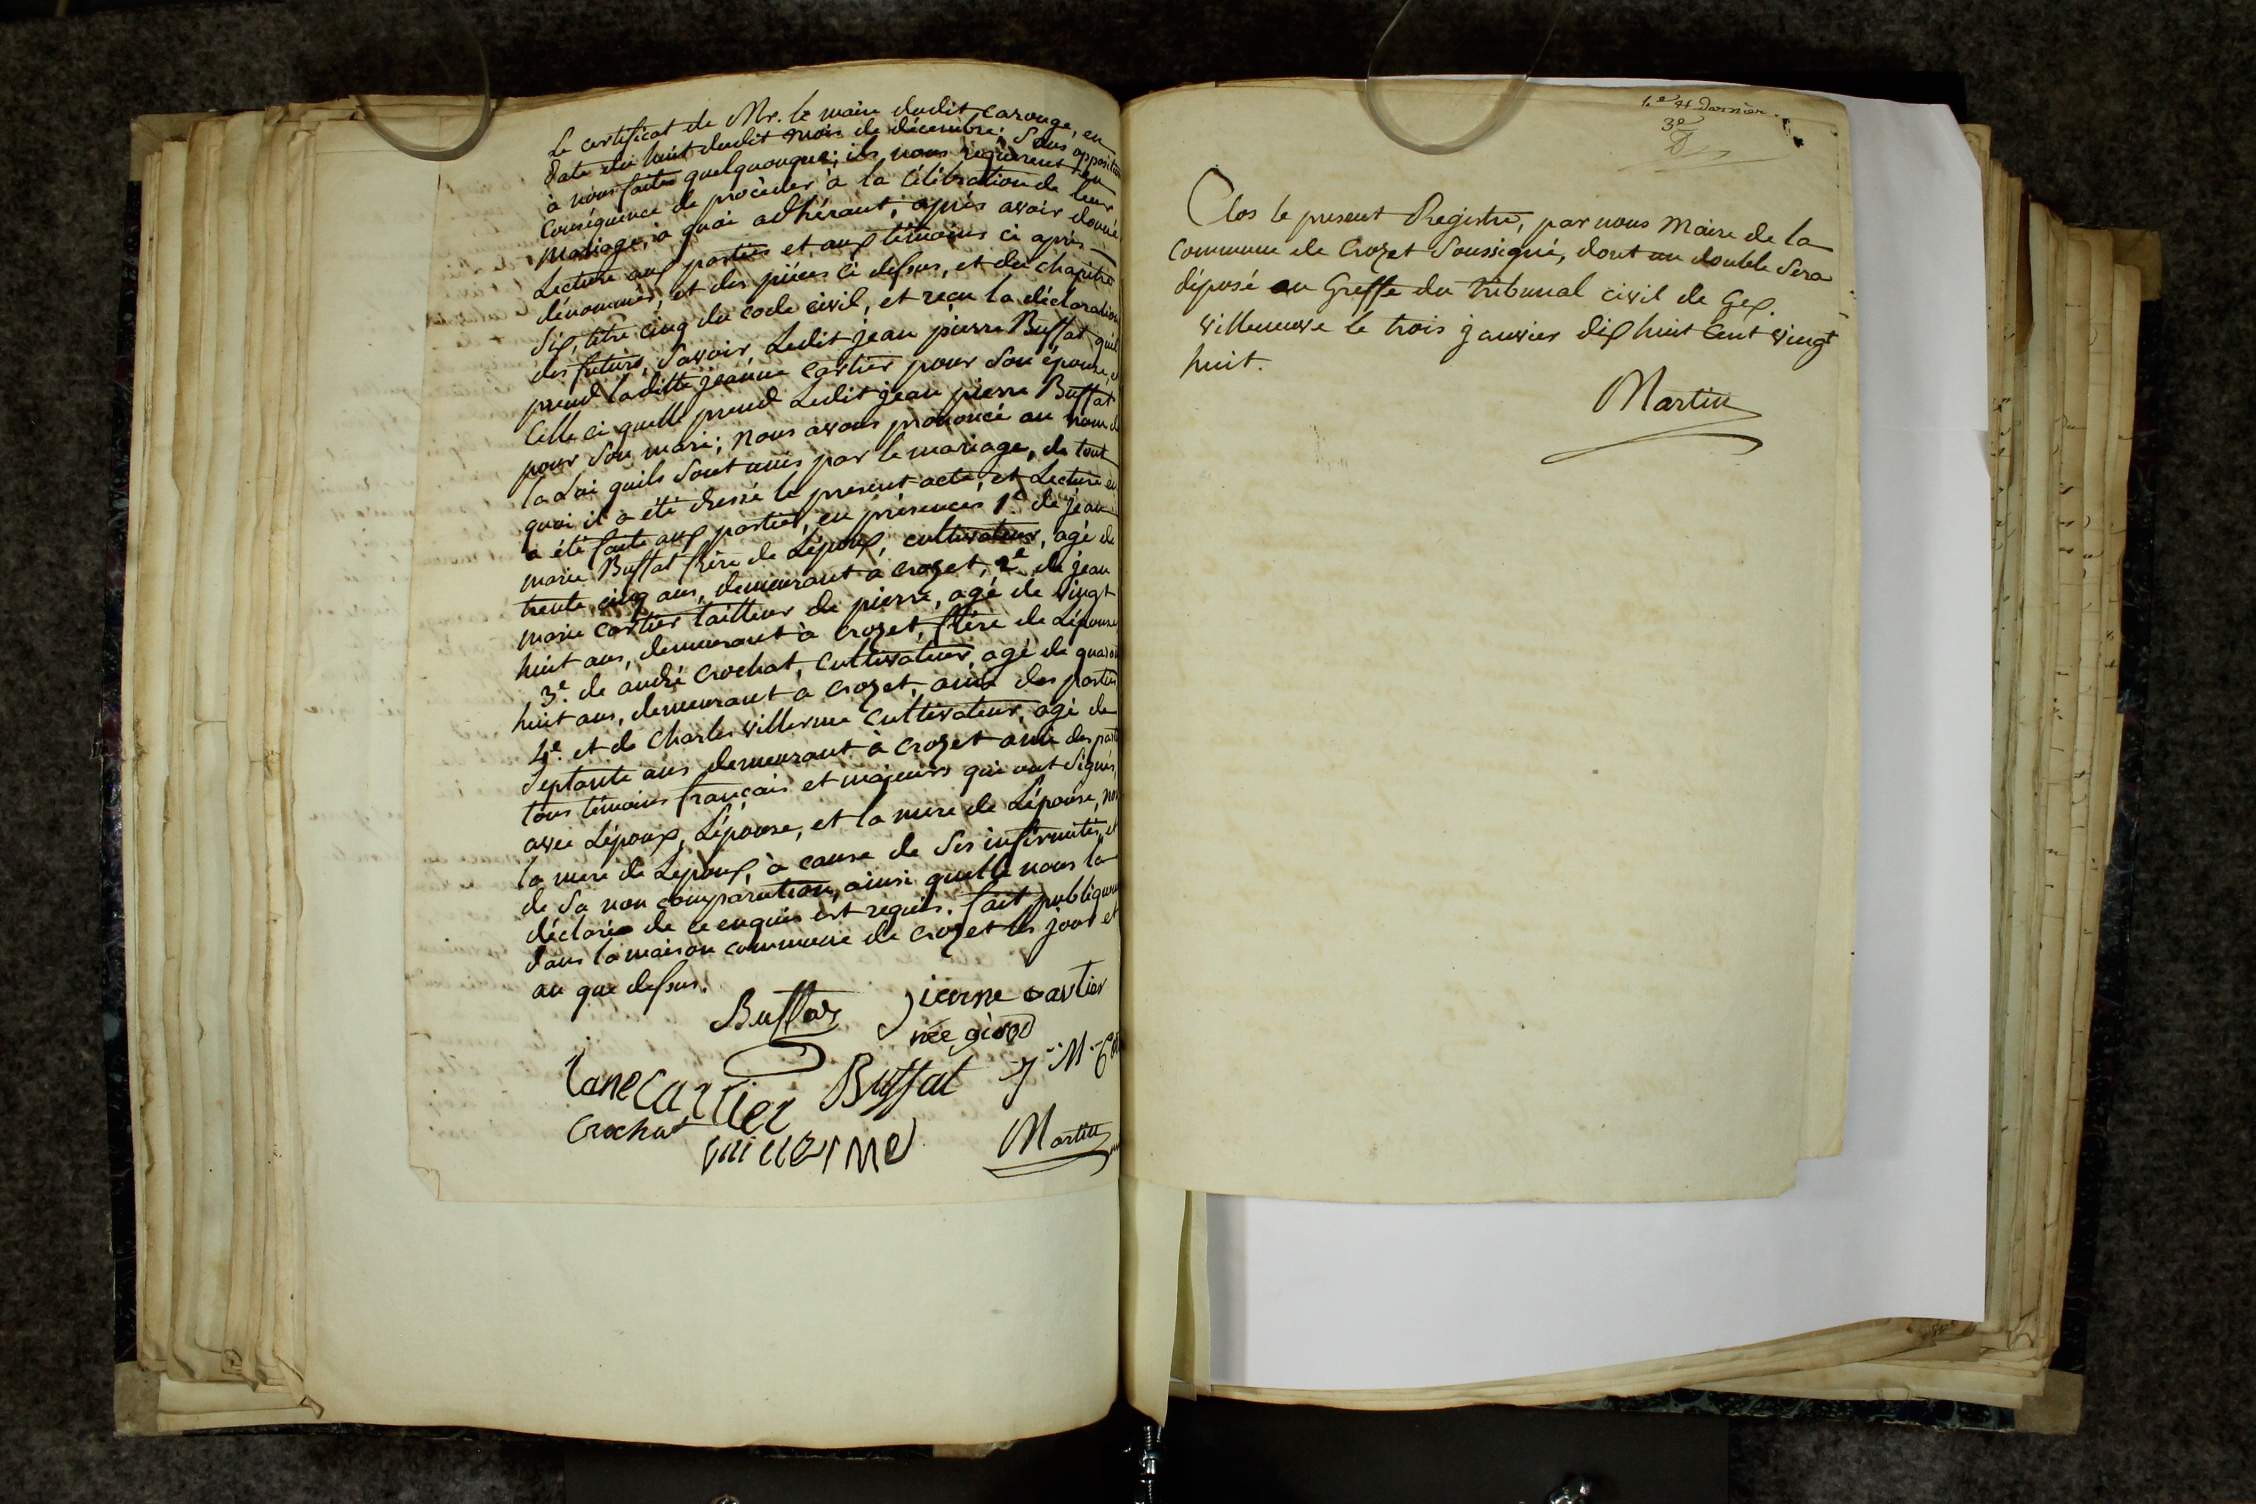 Le certificat de Mr. le maire dudit Carouge, en
date du huit dudit mois de décembre; Sans opposition
à nous faites quelquonques; ils nous requierent en
Conséquence de procéder à la Célébration de leur
Mariage, à quoi adhérant, après avoir donné
Lecture aux parties et aux témoins ci après
dénommés, et des pièces ci dessus, et du chapitre
Six, titre cinq du code civil, et reçu la déclaration
des futurs, Savoir, Ledit jean pierre Buffat quil
prend laditte jeanne Cartier pour Son épouse, et
Celle ci quelle prend Ledit jean pierre Buffat
pour Son mari; Nous avons prononcé au nom de
la Loi quils Sont unis par le mariage, de tout
quoi il a été dressé le present acte, et Lecture en
a été faite aux parties, en présences 1e. de jean
marie Buffat frère de Lépoux, cultivateur, agé de
trente cinq ans, demeurant à Crozet, 2e de jean
marie Cartier tailleur de pierre, agé de vingt
huit ans, demeurant à Crozet, frère de Lépouse
3e. de andré Crochat, Cultivateur, agé de quarante
huit ans, demeurant à Crozet, ami des parties
4e. et de Charles Villerme Cultivateur, agé de
Septante ans demeurant à Crozet ami des parties
tous témoins français et majeurs qui ont Signés,
avec Lépoux, Lépouse, et la mere de Lépouse, non
la mere de Lepoux, à cause de Ses infirmités, et
de Sa non comparution, ainsi quelle nous la
déclarée de ce enquis est requis. fait publiquement
dans la maison commune de Crozet les jour et
an que dessus.
Buffat jienne cartier
née girod
Jane Cartier Buffat J. M.
Crochat
Villerme Martin
1e et dernier.
3e
Clos le present Registre, par nous Maire de la
Commune de Crozet Soussigné, dont un double Sera
déposé au Greffe du tribunal civil de Gex.
Villeneuve le trois janvier dix huit Cent vingt
huit.
Martin